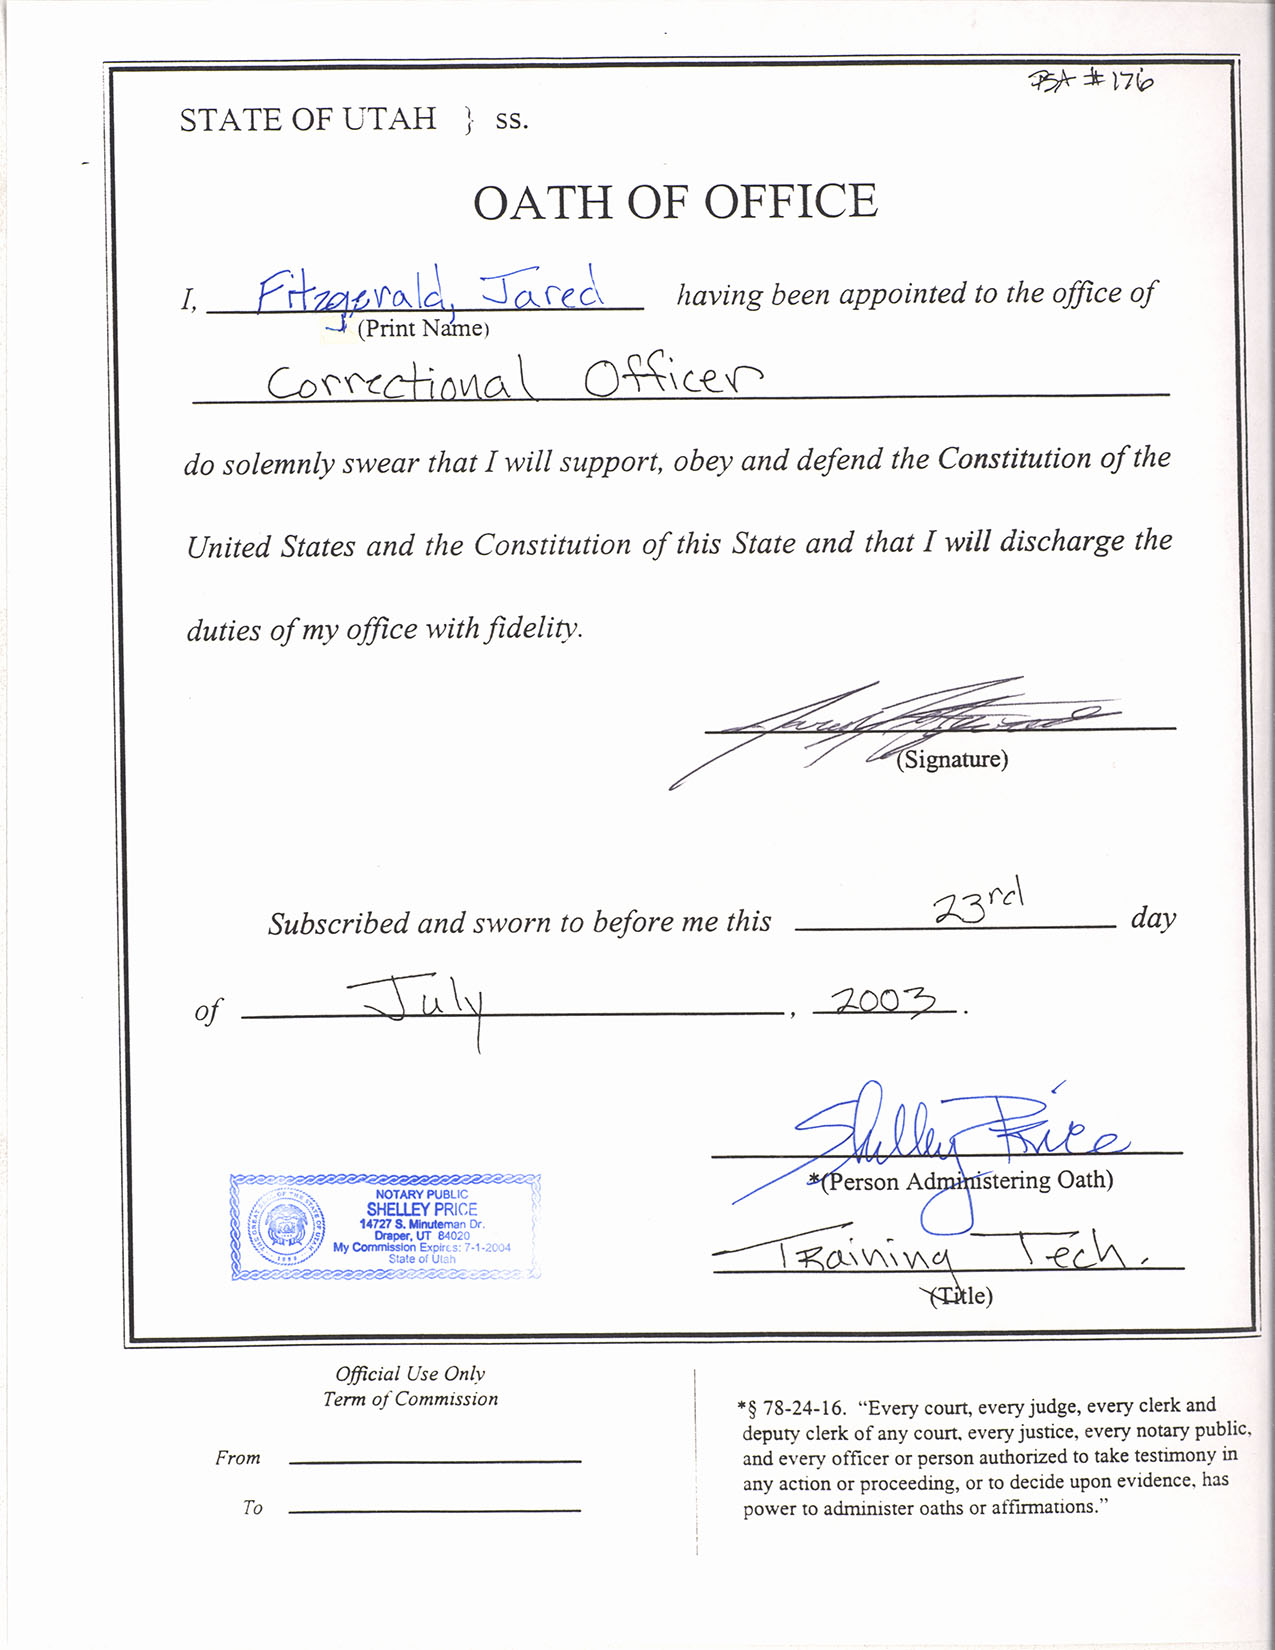 BA #176
STATE OF UTAH } ss.
OATH OF OFFICE
I, Fitzgerald, Jared having been appointed to the office of
(Print Name)
Correctional Officer
do solemnly swear that I will support, obey and defend the Constitution of the
United States and the Constitution of this State and that I will discharge the
duties of my office with fidelity.
(Signature)
Subscribed and sworn to before me this 23rd day
of July, 2003.
Shelley Price
*(Person Administering Oath)
NOTARY PUBLIC
SHELLEY PRICE
14727 S. Minuteman Dr.
Draper, UT 84020
My Commission Expires: 7-1-2004
State of Utah
Training Tech.
(Title)
Official Use Only
Term of Commission
From
To
*§ 78-24-16. “Every court, every judge, every clerk and
deputy clerk of any court, every justice, every notary public,
and every officer or person authorized to take testimony in
any action or proceeding, or to decide upon evidence, has
power to administer oaths or affirmations.”